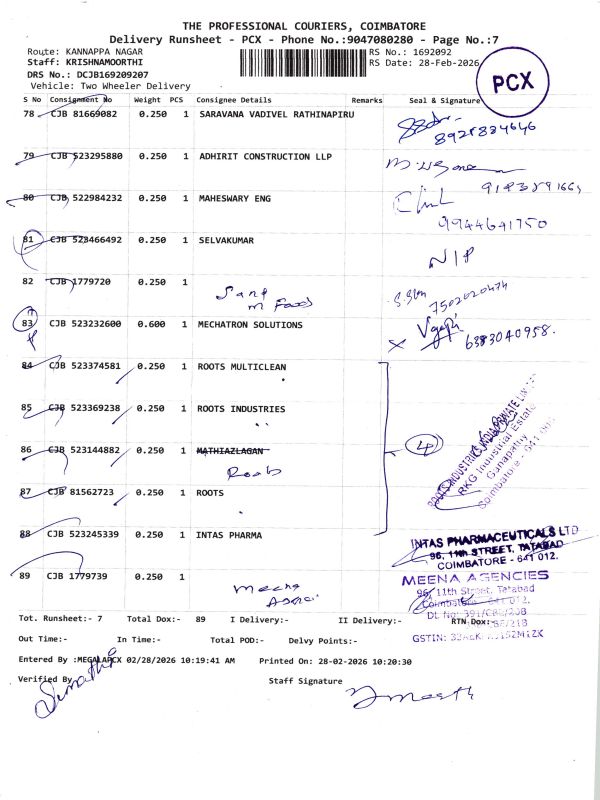 THE PROFESSIONAL COURIERS, COIMBATORE
Delivery Runsheet - PCX - Phone No.:9047080280 - Page No.:7
Route: KANNAPPA NAGAR RS No.: 1692092
Staff: KRISHNAMOORTHI RS Date: 28-Feb-2026
DRS No.: DCJB169209207
Vehicle: Two Wheeler Delivery
PCX
S No Consignment No Weight PCS Consignee Details Remarks Seal & Signature
78 CJB 81669082 0.250 1 SARAVANA VADIVEL RATHINAPIRU
8921884646
79 CJB 523295880 0.250 1 ADHIRIT CONSTRUCTION LLP
80 CJB 522984232 0.250 1 MAHESWARY ENG
9944641750
81 CJB 523466492 0.250 1 SELVAKUMAR
N/P
82 CJB 1779720 0.250 1
7502020474
83 CJB 523232600 0.600 1 MECHATRON SOLUTIONS
6383040958.
84 CJB 523374581 0.250 1 ROOTS MULTICLEAN
85 CJB 523369238 0.250 1 ROOTS INDUSTRIES
86 CJB 523144882 0.250 1 MATHIAZLAGAN
Roots
4
ROOTS INDUSTRIES INDIA PRIVATE
RKG Industrial Estate
Ganapathy
Coimbatore - 641
87 CJB 81562723 0.250 1 ROOTS
88 CJB 523245339 0.250 1 INTAS PHARMA
INTAS PHARMACEUTICALS LTD
96, 11th STREET, TATABAD
COIMBATORE - 641 012.
89 CJB 1779739 0.250 1
Meena
MEENA AGENCIES
96, 11th Street, Tatabad
Coimbatore - 641 012.
Tot. Runsheet:- 7 Total Dox:- 89 I Delivery:- II Delivery:- RTN Dox:-
Out Time:- In Time:- Total POD:- Delvy Points:-
GSTIN:
Entered By :MEGALAPCX 02/28/2026 10:19:41 AM Printed On: 28-02-2026 10:20:30
Verified By Staff Signature